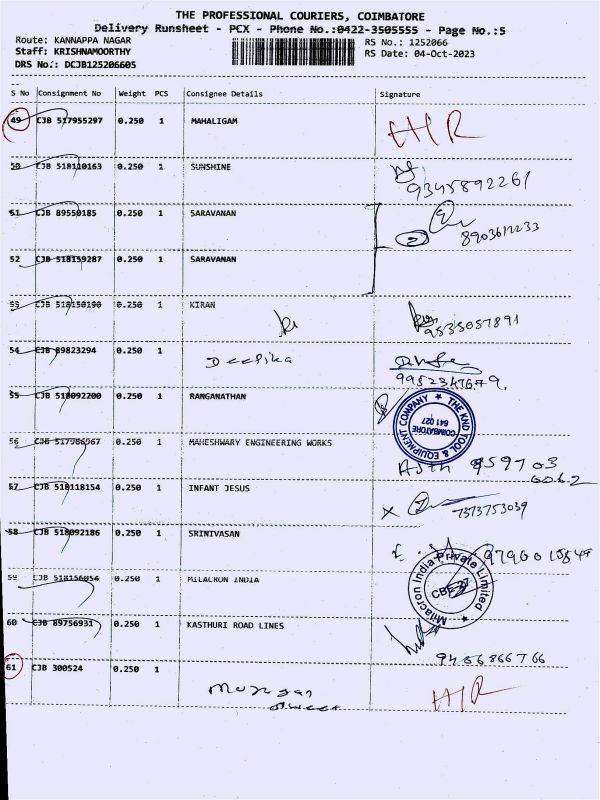 THE PROFESSIONAL COURIERS, COIMBATORE
Delivery Runsheet - PCX - Phone No.:0422-3505555 - Page No.:5
Route: KANNAPPA NAGAR
RS No.: 1252066
Staff: KRISHNAMOORTHY
RS Date: 04-Oct-2023
DRS No.: DCJB125206605
S No Consignment No Weight PCS Consignee Details Signature
49 CJB 517955297 0.250 1 MAHALIGAM
50 CJB 518110163 0.250 1 SUNSHINE
9345892261
51 CJB 89550185 0.250 1 SARAVANAN
8903612233
52 CJB 518159287 0.250 1 SARAVANAN
53 CJB 518150190 0.250 1 KIRAN
9535057891
54 CJB 89823294 0.250 1 Deepika
55 CJB 518092200 0.250 1 RANGANATHAN
THE KND TOOL & EQUIPMENT COMPANY
COIMBATORE
641 027
56 CJB 517986967 0.250 1 MAHESHWARY ENGINEERING WORKS
57 CJB 518118154 0.250 1 INFANT JESUS
7373753039
58 CJB 518092186 0.250 1 SRINIVASAN
59 CJB 518156054 0.250 1 MILACRON INDIA
Milacron India Private Limited
60 CJB 89756931 0.250 1 KASTHURI ROAD LINES
61 CJB 300524 0.250 1